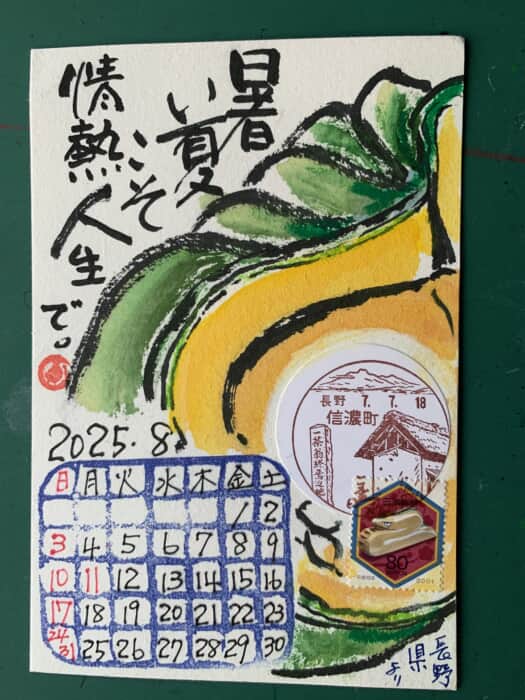 暑
い夏
こそ
情熱
人生
で。
2025.8.
日 月 火 水 木 金 土
1 2
3 4 5 6 7 8 9
10 11 12 13 14 15 16
17 18 19 20 21 22 23
24 31 25 26 27 28 29 30
長野 7.7.18
信濃町
80
2001
長野
県
より